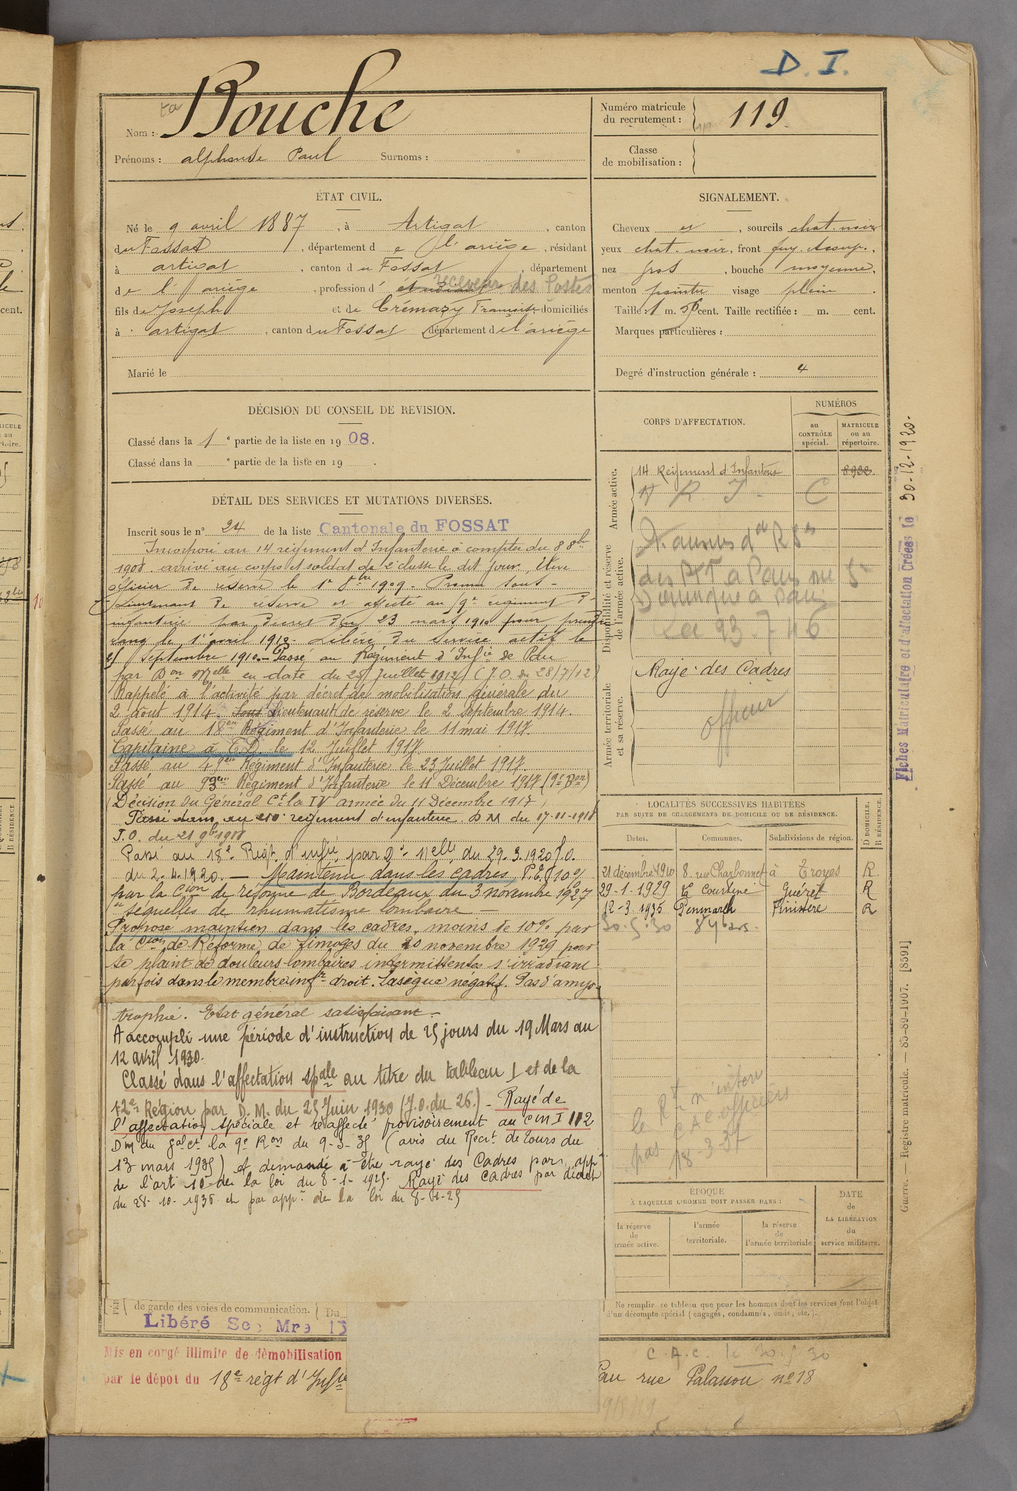 D. I.
Nom : Bouche
Prénoms : alphonse Paul Surnoms :
Numéro matricule
du recrutement : 119
Classe
de mobilisation :
ÉTAT CIVIL.
Né le 9 avril 1887, à Artigat, canton
du Fossat, département de l'ariège, résidant
à artigat, canton du Fossat, département
de l'ariège, profession d' étudiant receveur des Postes
fils de Joseph et de Crémazy Françoise domiciliés
à artigat, canton du Fossat, département de l'ariège
Marié le
SIGNALEMENT.
Cheveux et, sourcils chat. noir
yeux chat. noir, front fuy.
nez gros, bouche moyenne,
menton pointu visage plein
Taille : 1 m. 56 cent. Taille rectifiée : m. cent.
Marques particulières :
Degré d'instruction générale : 4
DÉCISION DU CONSEIL DE REVISION.
Classé dans la 1e partie de la liste en 1908.
Classé dans la e partie de la liste en 19 .
DÉTAIL DES SERVICES ET MUTATIONS DIVERSES.
Inscrit sous le n° 24 de la liste Cantonale du FOSSAT
Incorporé au 14 régiment d'Infanterie à compter du 8 8bre
1908. arrivé au corps et soldat de 2e classe le dit jour. Elève
officier de réserve le 1er 8bre 1909. Promu sous-
Lieutenant de réserve et affecté au 9e régiment d'
infanterie par décret du 23 mars 1910 pour prendre
rang le 1er avril 1910. Libéré du service actif le
25 Septembre 1910. Passé au Régiment d'Infie de Pau
par Don Melle en date du 25 juillet 1912 (J.O. du 28/7/12)
Rappelé à l'activité par décret de mobilisation générale du
2 aout 1914. Sous Lieutenant de réserve le 2 Septembre 1914.
Passé au 18ème Régiment d'Infanterie le 11 mai 1917.
Capitaine à T.D. le 12 Juillet 1917
Passé au 49ème Régiment d'Infanterie le 23 Juillet 1917.
Passé au 93ème Régiment d'Infanterie le 11 Décembre 1917 (9e Bon)
(Décision du Général Ct la IVe armée du 11 Décembre 1917)
Passé dans au 210e régiment d'infanterie D M du 17-11-1918
J.O. du 21 9bre 1918
Passé au 18e Regt d'infie par Dn Melle du 29.3.1920 J.O.
du 2.4.1920. — Maintenu dans les cadres, P.E. 10%
par la Cion de réforme de Bordeaux du 3 novembre 1927
"séquelles de rhumatisme lombaire —
Proposé maintien dans les cadres, moins de 10% par
la Cion de Réforme de Limoges du 20 novembre 1929 pour
se plaint de douleurs lombaires intermittentes s'irradiant
parfois dans le membre infr droit. Lasègue négatif. Pas d'amyo-
trophie. Etat général satisfaisant —
A accompli une période d'instruction de 25 jours du 19 Mars au
12 avril 1930.
Classé dans l'affectation spale au titre du tableau I et de la
12e Région par D.M. du 25 Juin 1930 (J.O. du 26.) - Rayé de
l'affectation spéciale et réaffecté provisoirement au CM I 112
Dm du Gal Ct la 9e Ron du 9-3-35 (avis du Rect de Tours du
13 mars 1935) et demande à être rayé des Cadres par app
de l'art 10 de la loi du 8-1-1925. Rayé des Cadres par décret
du 28.10.1935 et par appn de la loi du 8-1-25
de garde des voies de communication.
Libéré Sec Mre 13
Mis en congé illimité de démobilisation
par le dépôt du 18e régt d'Infie
CORPS D'AFFECTATION.
NUMÉROS
au
CONTRÔLE
spécial.
MATRICULE
ou au
répertoire.
Armée active.
14 Régiment d'Infanterie 8932
R. I. C
Disponibilité et réserve
de l'armée active.
Armée territoriale
et sa réserve.
Rayé des Cadres
officier
LOCALITÉS SUCCESSIVES HABITÉES
PAR SUITE DE CHANGEMENTS DE DOMICILE OU DE RÉSIDENCE.
Dates. Communes. Subdivisions de région. D DOMICILE. R RÉSIDENCE.
21 décembre 1920 8 rue Charbonnet à Troyes R
29-1-1929 La Courtine Guéret R
12-3-1935 Penmarch Finistère R
30.5.30
le Rt n'interv
pas CAC officiers
18-3-37
ÉPOQUE
À LAQUELLE L'HOMME DOIT PASSER DANS :
la réserve
de
l'armée active.
l'armée
territoriale.
la réserve
de
l'armée territoriale
DATE
de
LA LIBÉRATION
du
service militaire.
Ne remplir ce tableau que pour les hommes dont les services font l'objet
d'un décompte spécial (engagés, condamnés, omis, etc.).
C.A.C. le 30.5.30
Pau rue Palassou n° 18
Fiches Matriculaire et d'affectation Créées le 30-12-1920.
Guerre. — Registre matricule. — 85-89-1907. [8591]